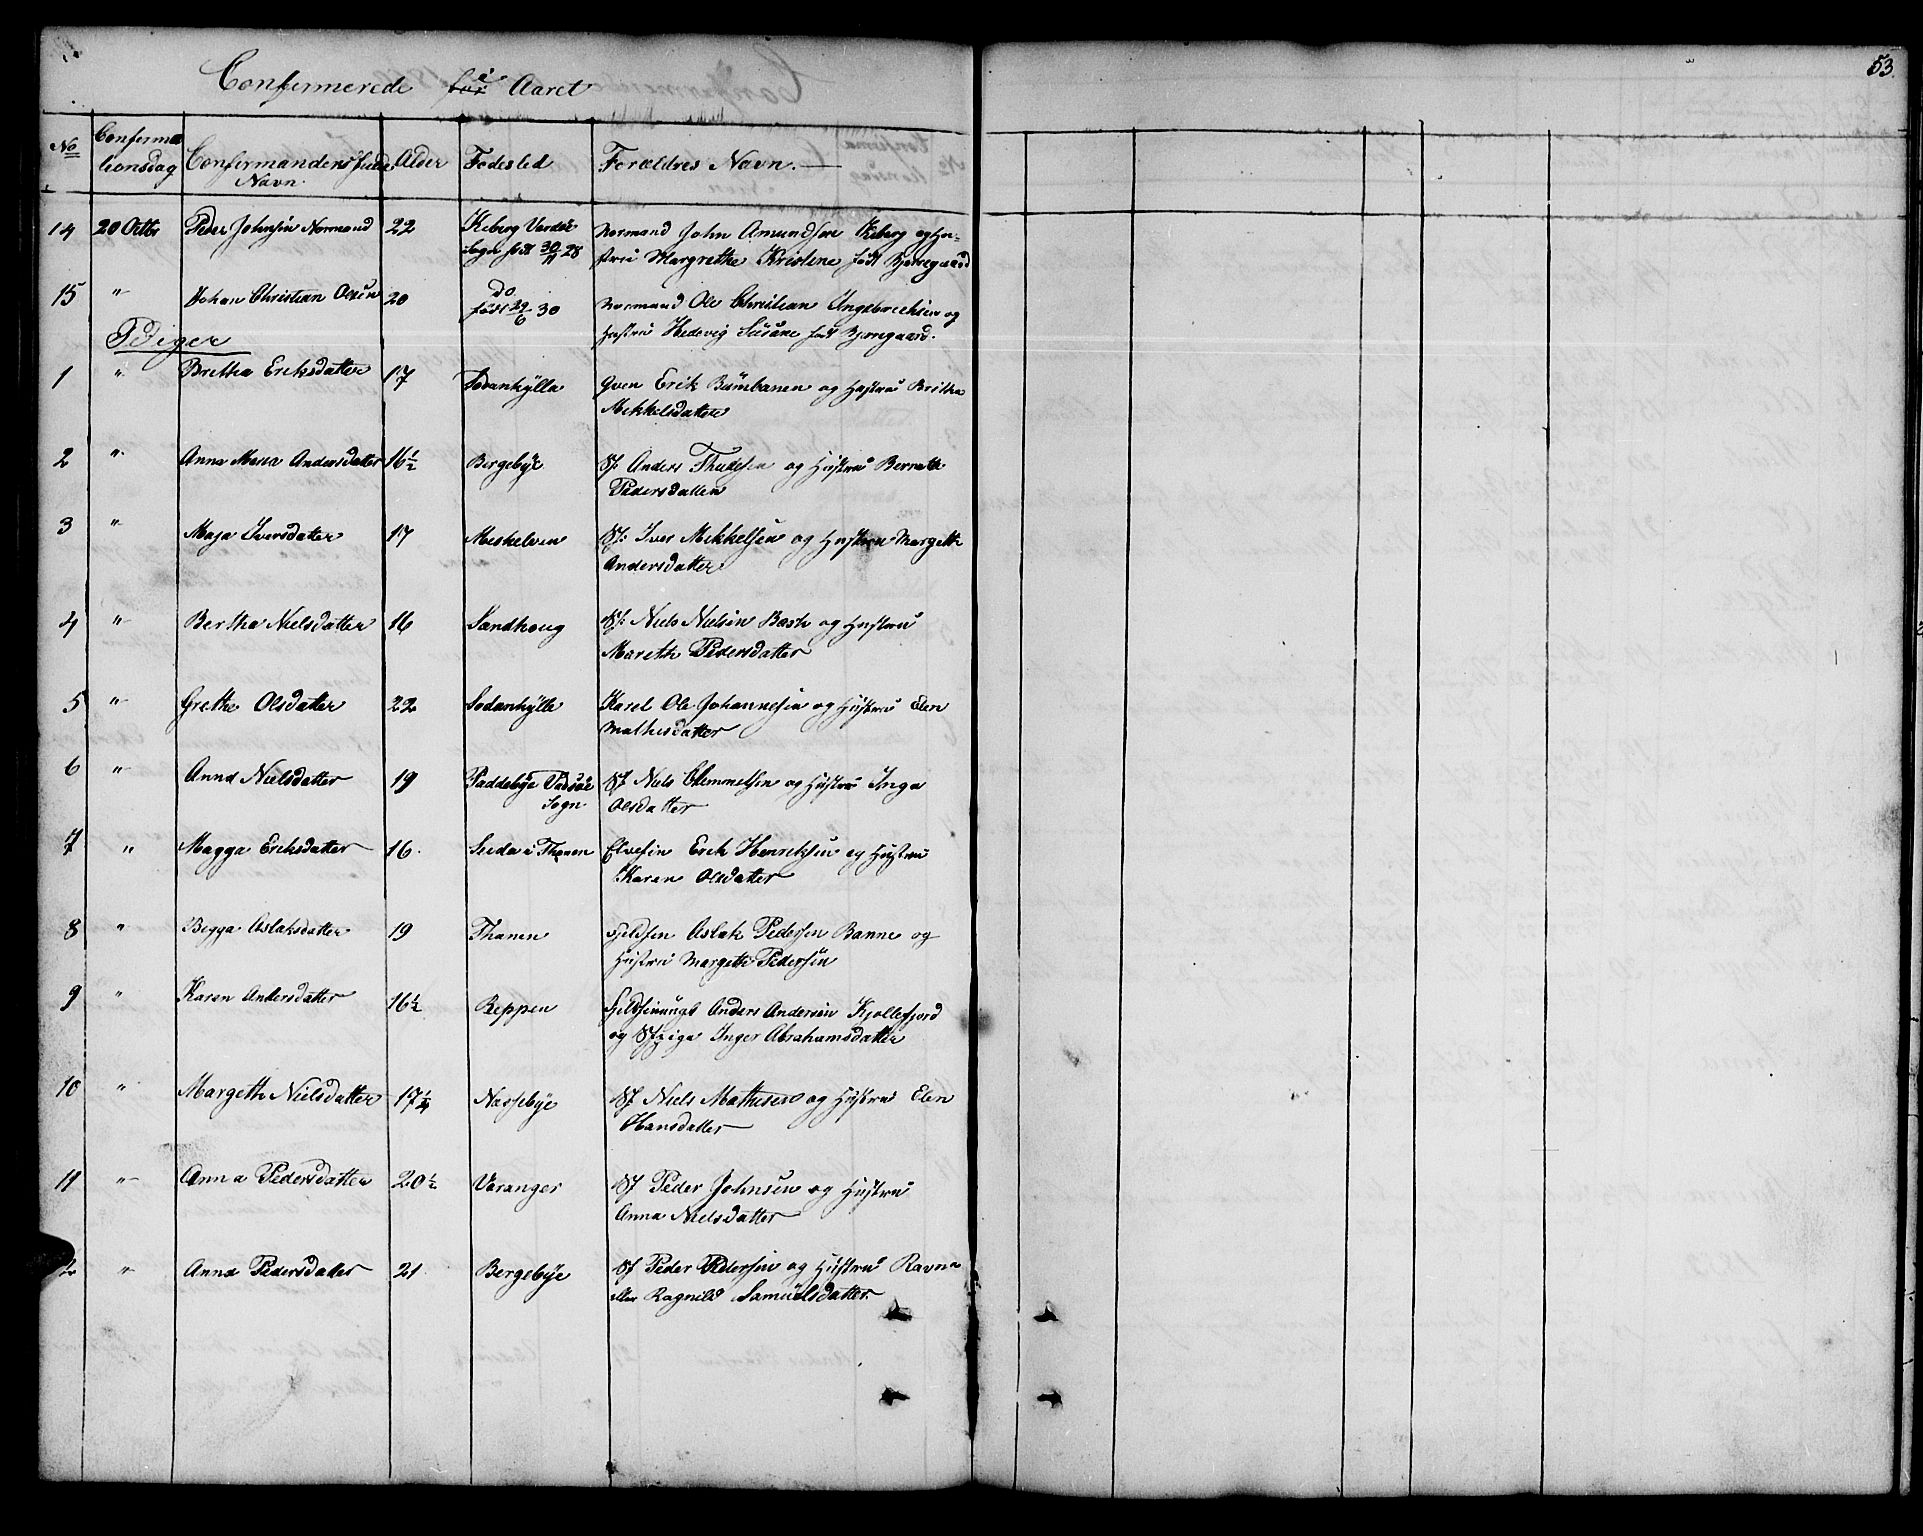 53.
Confermerede for i Aaret
No Conferma tionsdag Confirmandens fulde Navn. Alder Fødested Forældres Navn.
14 20 Octbr Peder Johnsen Normand 22 Kiberg Vardøe Normand John Amundsen Kiberg og Hu-
Sogn født 30/11 28 strue Margrethe Kristine født Bjerregaard
15 " Johan Christian Olsen 20 do Normand Ole Christian Ingebrechtsen og
født 29/6 30 Hustrue Hedevig Susane født Bjerregaard.
Piger
1 " Britha Eriksdatter 17 Sodankylla Qven Erik Bumbanen og Hustrue Britha
Mikkelsdatter
2 " Anna Maria Andersdatter 16½ Bergebye Sf: Anders Thudesen og Hustrue Bereth
Pedersdatter
3 " Maja Iversdatter 17 Meskelven Sf: Iver Mikkelsen og Hustrue Margeth
Andersdatter
4 " Bertha Nielsdatter 16 Sandhoug Sf: Niels Nielsen Bash og Hustrue
Mareth Pedersdatter
5 " Grethe Olsdatter 22 Sodankylle Karel Ole Johannesen og Hustrue Elen
Mathisdatter
6 " Anna Nielsdatter 19 Paddebye Vadsøe Sf Niels Clemmetsen og Hustrue Inga
Sogn Olsdatter
7 " Magga Eriksdatter 16. Seida i Thanen Elvefin Erik Henriksen og Hustrue
Karen Olsdatter
8 " Begga Aslaksdatter 19 Thanen Fjeldfin Aslak Pedersen Banne og
Hustrue Margeth Pedersen
9 " Karen Andersdatter 16½ Beppen Fjeldfinungk Anders Andersen Kjollefjord
og Sfpige Inger Abrahamsdatter
10 " Margeth Nielsdatter 17¼ Nassebye Sf Niels Mathisen og Hustrue Elen
Hansdatter
11 " Anna Pedersdatter 20½ Varanger Sf Peder Johnsen og Hustrue
Anna Nielsdatter
2 " Anna Pedersdatter 21 Bergebye Sf Peder Pedersen og Hustrue Ravna
eller Ragnild Samuelsdatter.